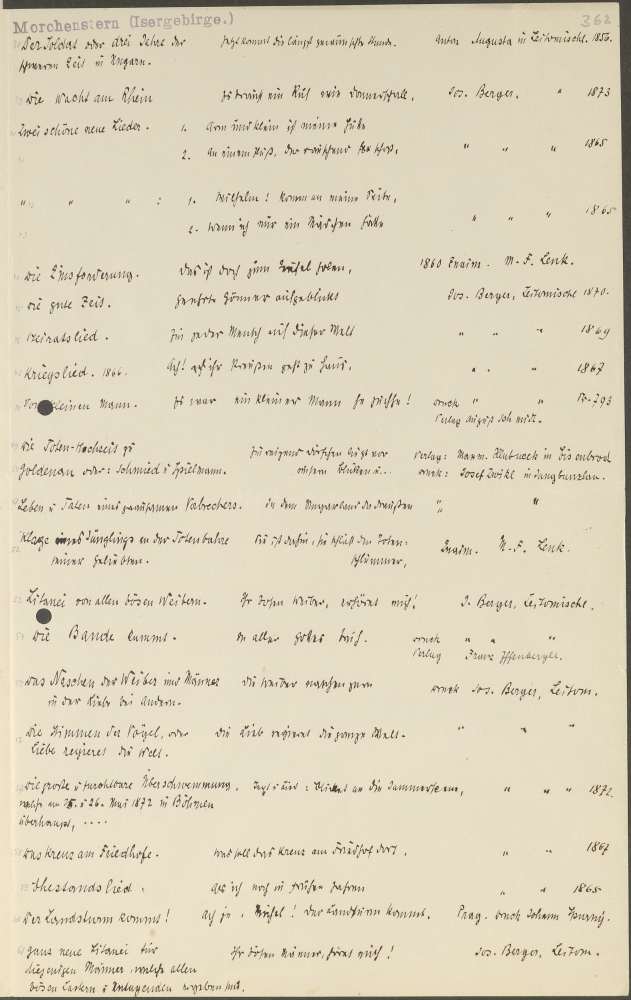 Morchenstern (Isergebirge.) 362
Der Soldat oder drei Jahre der Jetzt kommt die längst gewünschte Stunde. Anton Augusta in Leitomischl. 1856.
schweren Zeit in Ungarn.
Die Wacht am Rhein Es braust ein Ruf wie Donnerhall, Jos. Berger, " 1873
Zwei schöne neue Lieder. 1. Arm und klein ist meine Hütte
2. An einem Fluß, der rauschend schoß, " " " 1865
" " " : 1. Wilhelm! Komm an meine Seite,
2. Wenn ich nur ein Mädchen hätte " " " 1865
Die Einsforderung. Das ist doch zum Teufel holen, 1860 Znaim. M. F. Lenk.
Die gute Zeit. Geehrte Gönner aufgeblickt Jos. Berger, Leitomischl 1870.
Heiratslied. Ein jeder Mensch auf dieser Welt " " " 1869
Kriegslied. 1866. Ach! ihr Preußen geht zu Haus, " " " 1867
Vom kleinen Mann. Es war ein kleiner Mann he juchhe! Druck " " No-793
Verlag August Schmidt.
Die Toten-Hochzeit zu Verlag: in Bis
Goldenau oder: Schmied u. Spielmann. Druck: Josef Zwikl in Jungbunzlau.
Leben u. Taten eines grausamen Verbrechers. In dem Ungarland da draußen " "
Klage eines Jünglings an der Totenbahre Sie ist dahin, sie schläft den Toten-
seiner Geliebten. schlummer, Znaim. M. F. Lenk.
Litanei von allen bösen Weibern. Ihr bösen Weiber, erhöret mich! J. Berger, Leitomischl.
Die Bande kommt. In aller Druck " " "
Verlag Franz Iffenberger.
Das Naschen der Weiber und Männer Die Weiber naschen gern Druck Jos. Berger, Leitom.
in der Liebe bei Andern.
Die Stimmen der Vögel, oder Die Lieb regieret die ganze Welt. " " "
Liebe regieret die Welt.
Die große u. furchtbare Überschwemmung, : Blicket an die Jammerscene, " " " 1872.
welche am 25. u. 26. Mai 1872 in Böhmen
überhaupt, ....
Das Kreuz am Friedhofe. Was soll das Kreuz am Friedhof dort, " " 1867
Ehestandslied. Als ich noch in frühen Jahren " " 1865
Der Landsturm kommt! Ach je, Michel! Der Landsturm kommt. Prag. Druck Johann Spurny.
Ganz neue Litanei für Ihr bösen Männer, höret mich! Jos. Berger, Leitom.
diejenigen Männer, welche allen
bösen Lastern u. Untugenden ergeben sind.